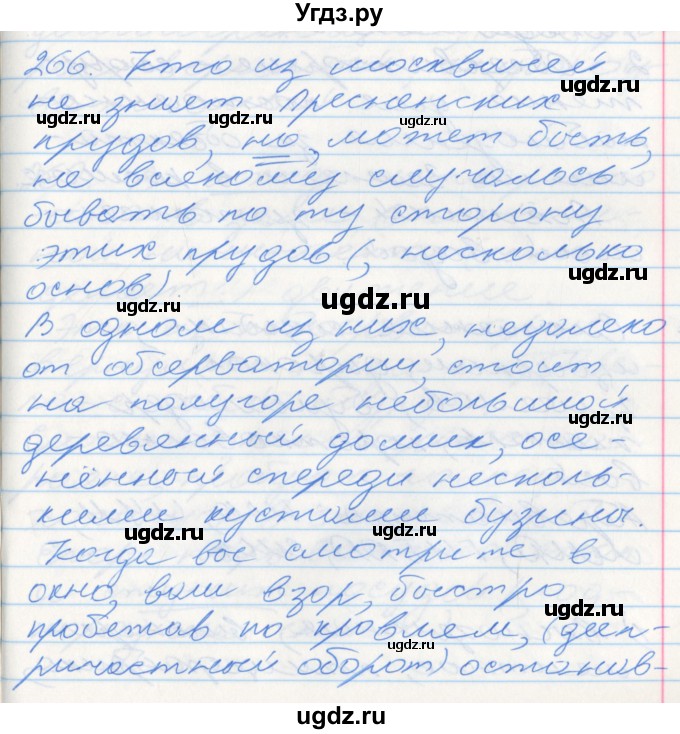 Угдз.ру
266. Кто из москвичей
ugdz.ru
не знает Пресненских
ugdz.ru
ugdz.ru
прудов, но, может быть,
ugdz.ru
не всякому случалось
бывать по ту сторону
этих прудов (, несколько
ugdz.ru
ugdz.ru
основ)
ugdz.ru
ugdz.ru
В одном из них, недалеко
от обсерватории, стоит
ugdz.ru
на полугоре небольшой
ugdz.ru
деревянный домик, осе-
нённый спереди несколь-
кими кустами бузины.
ugdz.ru
ugdz.ru
Когда вы смотрите в
окно, ваш взор, быстро
ugdz.ru
пробежав по кровлям, (дееп-
ричастный оборот) останав-
ugdz.ru
ugdz.ru